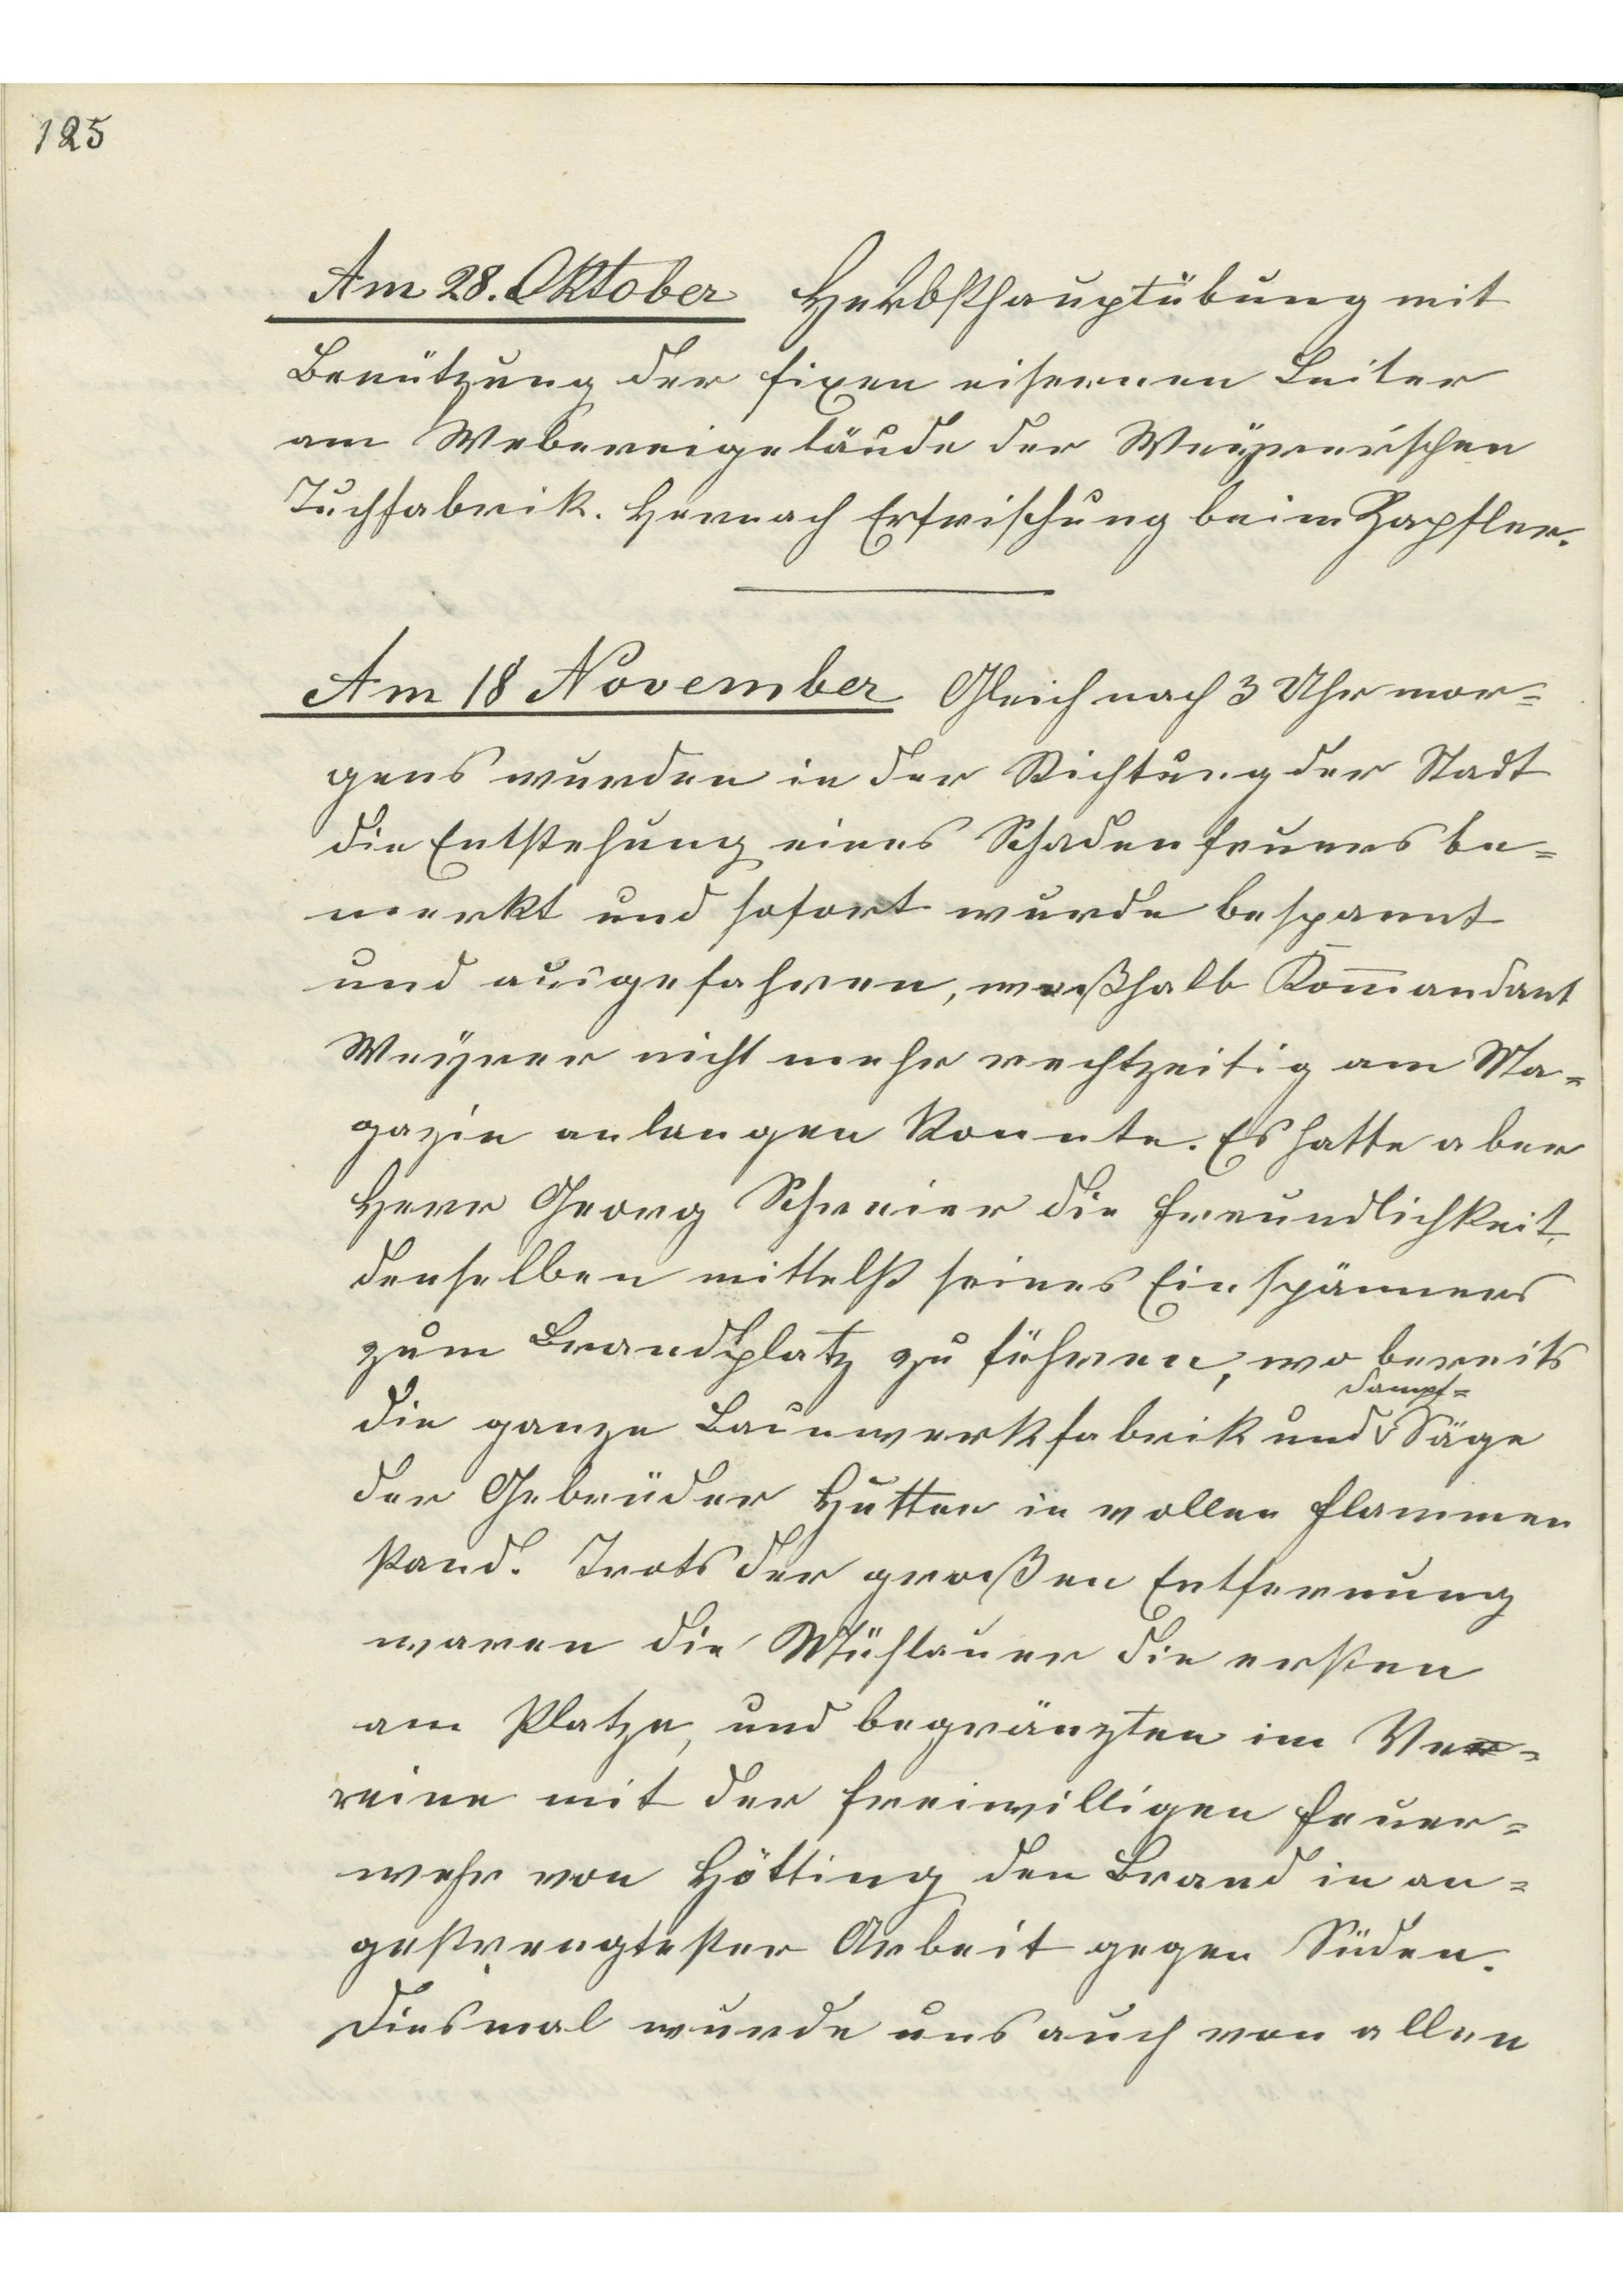 125
Am 28. Oktober Herbsthauptübung mit
Benützung der fixen eisernen Leiter
am Webereigebäude der Weyrer'schen
Tuchfabrik. Hernach Erfrischung beim Zapfler.
Am 18 November Gleich nach 3 Uhr mor=
gens wurden in der Richtung der Stadt
die Entstehung eines Schadenfeuers be=
merkt und sofort wurde bespannt
und ausgefahren, weßhalb Kom̅andant
Weyrer nicht mehr rechtzeitig am Ma=
gazin anlangen konnte. Es hatte aber
Herr Georg Schreier die Freundlichkeit,
denselben mittelst seines Einspänners
zum Brandplatz zu führen, wo bereits
die ganze Bauwerkfabrik und Dampf=Säge
der Gebrüder Hutter in vollen Flammen
stand. Trots der großen Entfernung
waren die Mühlauer die ersten
am Platze, und begränzten im Ver=
reine mit der freiwilligen Feuer=
wehr von Hötting den Brand in an=
gestrengtester Arbeit gegen Süden.
Diesmal wurde uns auch von allen